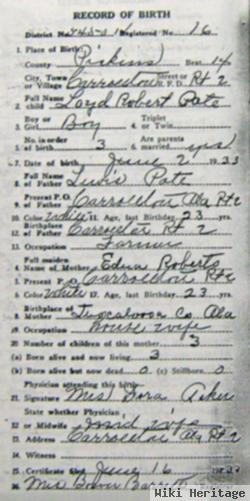 RECORD OF BIRTH
District No. Registered No. 16
1. Place of Birth
County Pickens Beat 14
City, Town Street or
or Village Carrollton R. F. D. Rt 2
Full Name
2. child Loyd Robert Pate
Boy or Triplet
3. Girl Boy 4. or Twin.
No. in order Are parents
5. of birth 3 6. married yes
7. Date of birth June 2 1923
Full Name
8. of Father Lewis Pate
Present P. O.
9. of Father Carrollton Ala Rt 2
10. Color White 11. Age, last Birthday 23 yrs.
Birthplace
12. of Father Carrollton Rt 2
13. Occupation Farmer
Full maiden
4. Name of Mother Edna Roberts
5. Present P. O. Carrollton Rt 2
Color White 17. Age, last Birthday 23
Birthplace
8. Mother Tuscaloosa Co Ala
19. Occupation House wife
20 Number of children of this mother 3
(a) Born alive and now living 3
(b) Born alive but now dead 0 (c) Stillborn 0
Physician attending this birth
21. Signature Mrs Dora Acker
State whether Physician
22 or Midwife mid wife
23. Address Carrollton Ala Rt 2
24. Witness
25. Certificate filed June 16
26 Mrs
Wiki Heritage